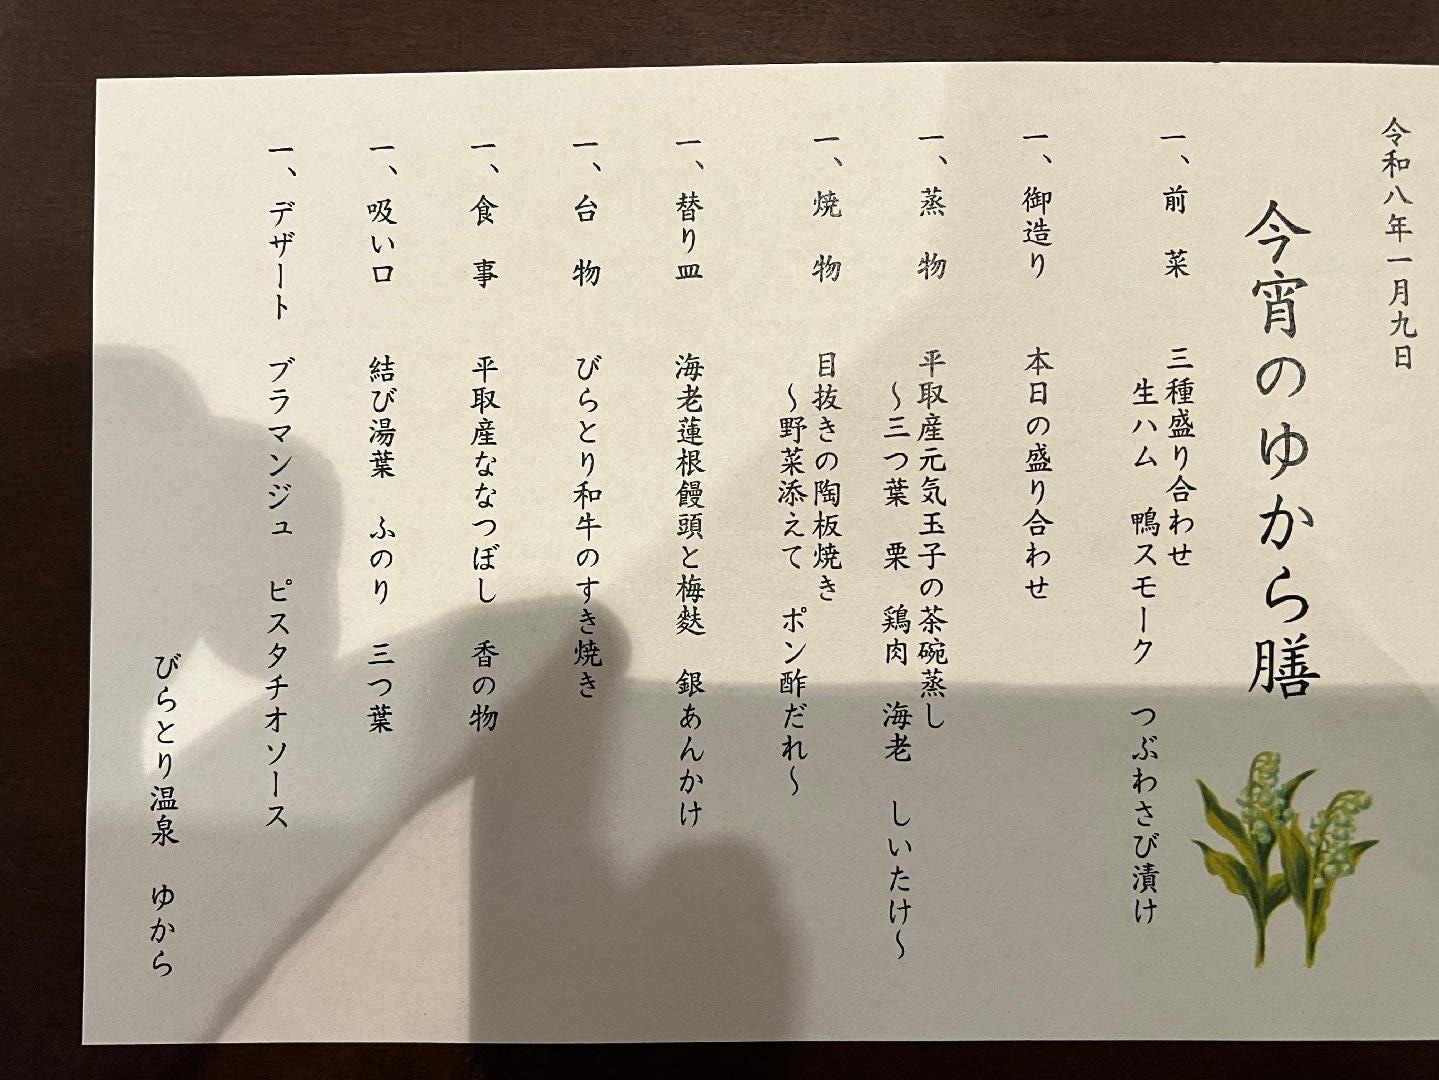 令和八年一月九日
今宵のゆから膳
一、前　菜　三種盛り合わせ
生ハム　鴨スモーク　つぶわさび漬け
一、御造り　本日の盛り合わせ
一、蒸　物　平取産元気玉子の茶碗蒸し
～三つ葉　栗　鶏肉　海老　しいたけ～
一、焼　物　目抜きの陶板焼き
～野菜添えて　ポン酢だれ～
一、替り皿　海老蓮根饅頭と梅麩　銀あんかけ
一、台　物　びらとり和牛のすき焼き
一、食　事　平取産ななつぼし　香の物
一、吸い口　結び湯葉　ふのり　三つ葉
一、デザート　ブラマンジュ　ピスタチオソース
びらとり温泉　ゆから